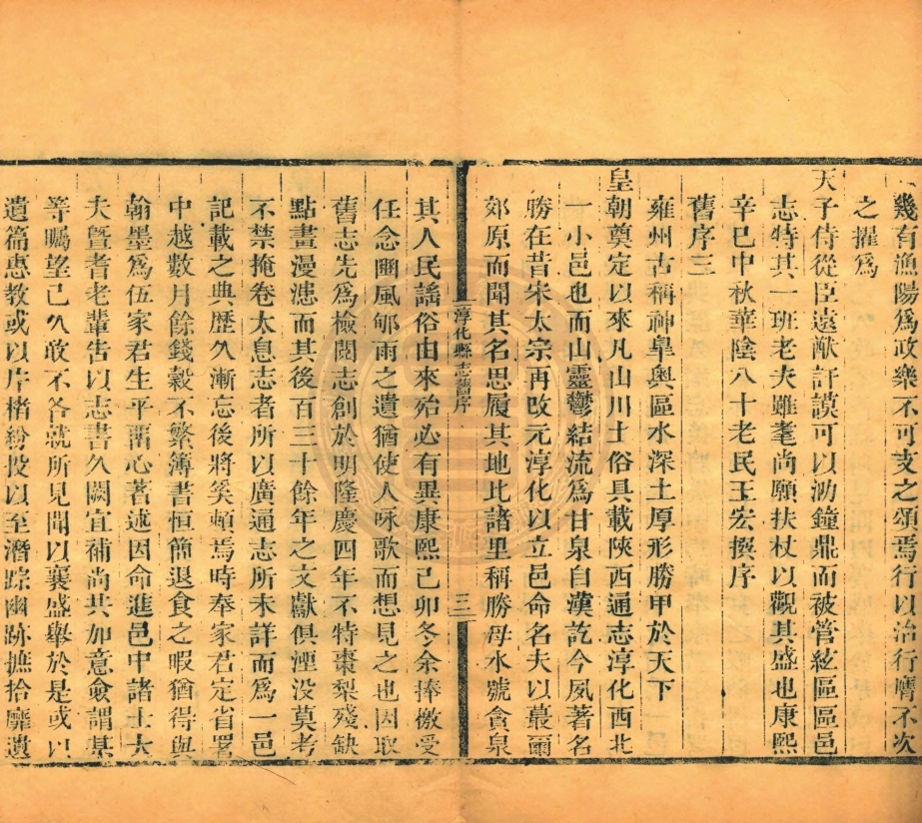 幾有漁陽爲政樂不可支之頌焉行以治行膺不次
之擢爲
天子侍從臣遠猷訏謨可以泐鐘鼎而被管絃區區邑
志特其一班老夫雖耄尚願扶杖以觀其盛也康熙
辛巳中秋華陰八十老民王宏撰序
舊序三
雍州古稱神臯奧區水深土厚形勝甲於天下
皇朝奠定以來凡山川土俗具載陝西通志淳化西北
一小邑也而山靈鬱結流爲甘泉自漢訖今夙著名
勝在昔宋太宗再改元淳化以立邑命名夫以蕞爾
郊原而聞其名思履其地比諸里稱勝母水號貪泉
淳化縣志舊序
三
其人民謠俗由來殆必有異康熙己卯冬余捧檄受
任念豳風郇雨之遺猶使人咏歌而想見之也因取
舊志先爲檢閱志創於明隆慶四年不特棗梨殘缺
點畫漫漶而其後百三十餘年之文獻俱湮没莫考
不禁掩卷太息志者所以廣通志所未詳而爲一邑
記載之典歷久漸忘後將奚頓焉時奉家君定省署
中越數月餘錢穀不繁簿書恒簡退食之暇猶得與
翰墨爲伍家君生平畱心著述因命進邑中諸士大
夫曁耆老輩告以志書久闕宜補尚其加意僉謂某
等矚望已久敢不各就所見聞以襄盛舉於是或以
遺篇惠教或以片楮紛投以至潛踪幽跡摭拾靡遺